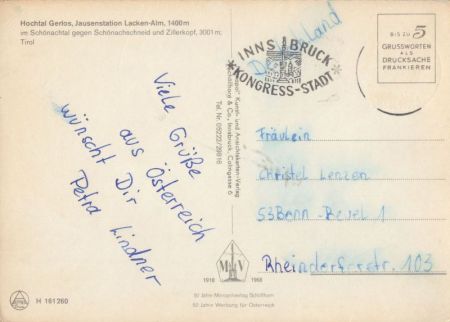 Hochtal Gerlos, Jausenstation Lacken-Alm, 1400m
im Schönachtal gegen Schönachschneid und Zillerkopf, 3001m;
Tirol
Viele Grüße
aus Österreich
wünscht Dir
Petra Lindner
Kunst- und Ansichtskarten-Verlag
& Co., Innsbruck,
Tel. Nr. 05222/29816
Deutschland
INNSBRUCK
KONGRESS-STADT
BIS ZU 5
GRUSSWORTEN
ALS
DRUCKSACHE
FRANKIEREN
Fräulein
Christel Lenzen
53 Bonn-Beuel 1
Rheindorferstr. 103
1918 1968
50 Jahre Werbung für Österreich
H 161260